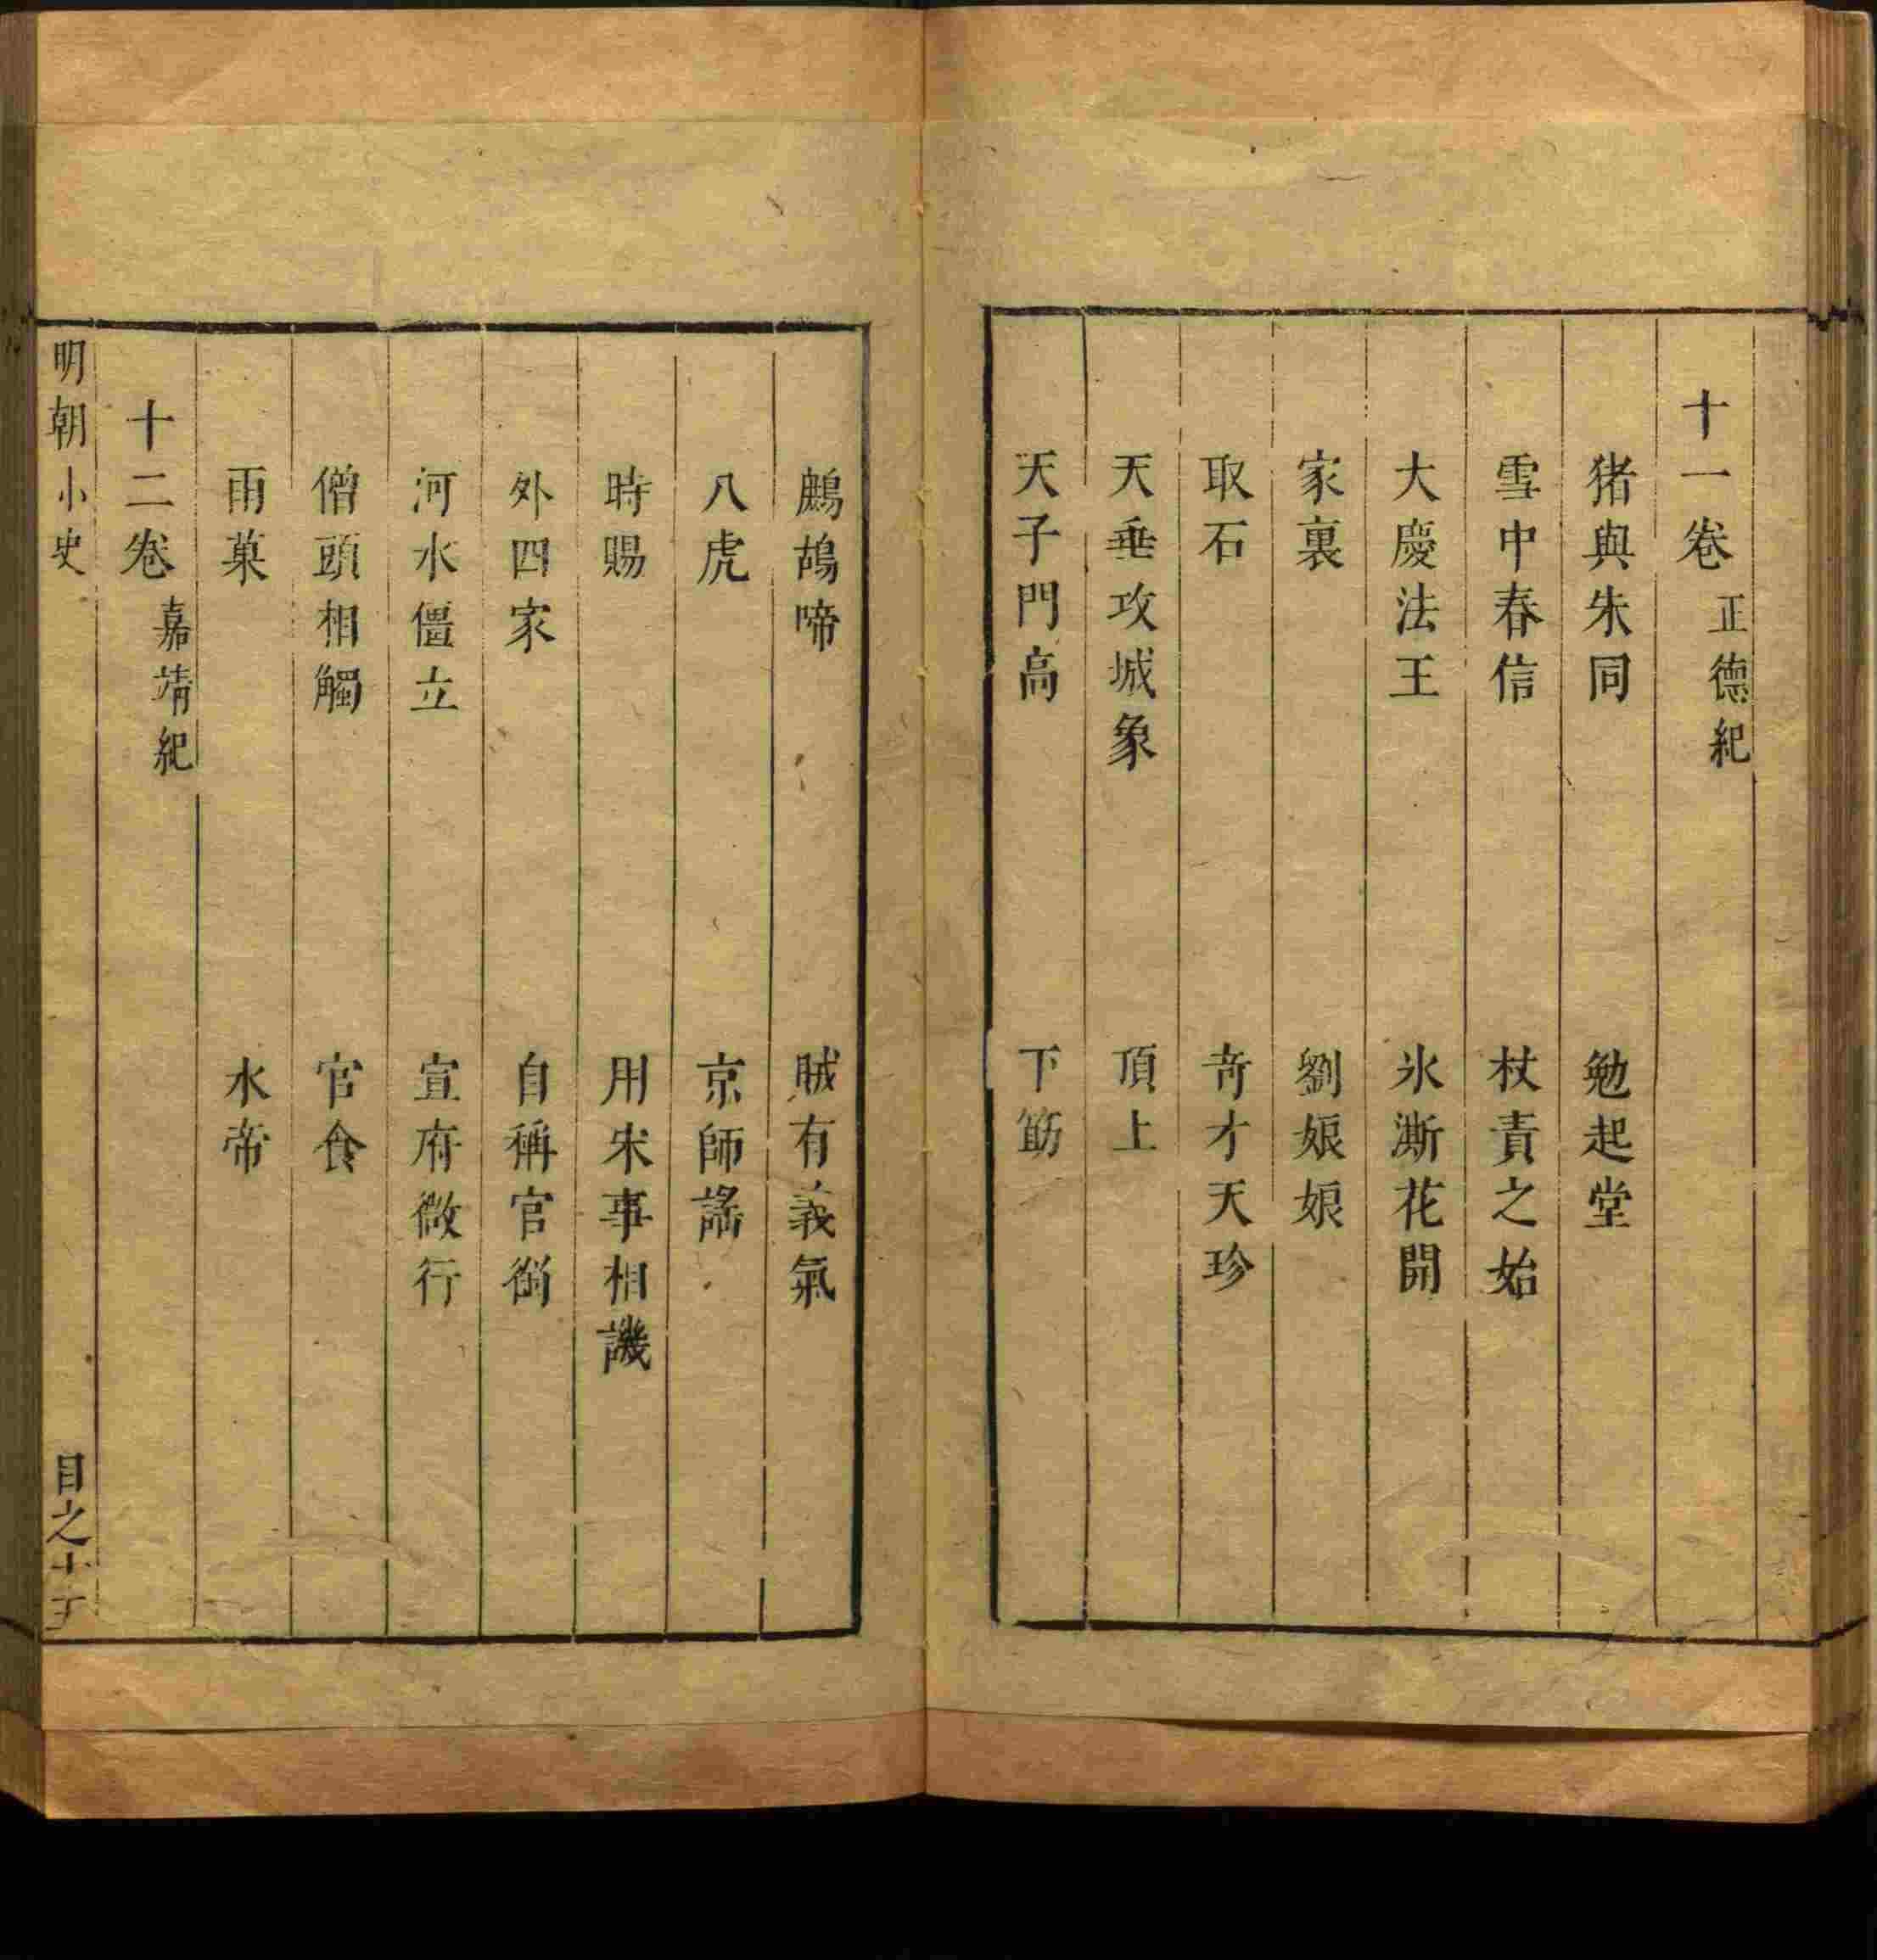 十一卷 正德紀
猪與朱同 勉起堂
雪中春信 杖責之始
大慶法王 氷澌花開
家裏 劉娘娘
取石 奇才天珍
天垂攻城象 頂上
天子門高 下筯
鷓鴣啼 賊有義氣
八虎 京師謠
時賜 用宋事相譏
外四家 自稱官銜
河水僵立 宣府微行
僧頭相觸 官食
雨菓 水帝
十二卷 嘉靖紀
明朝小史 目之十